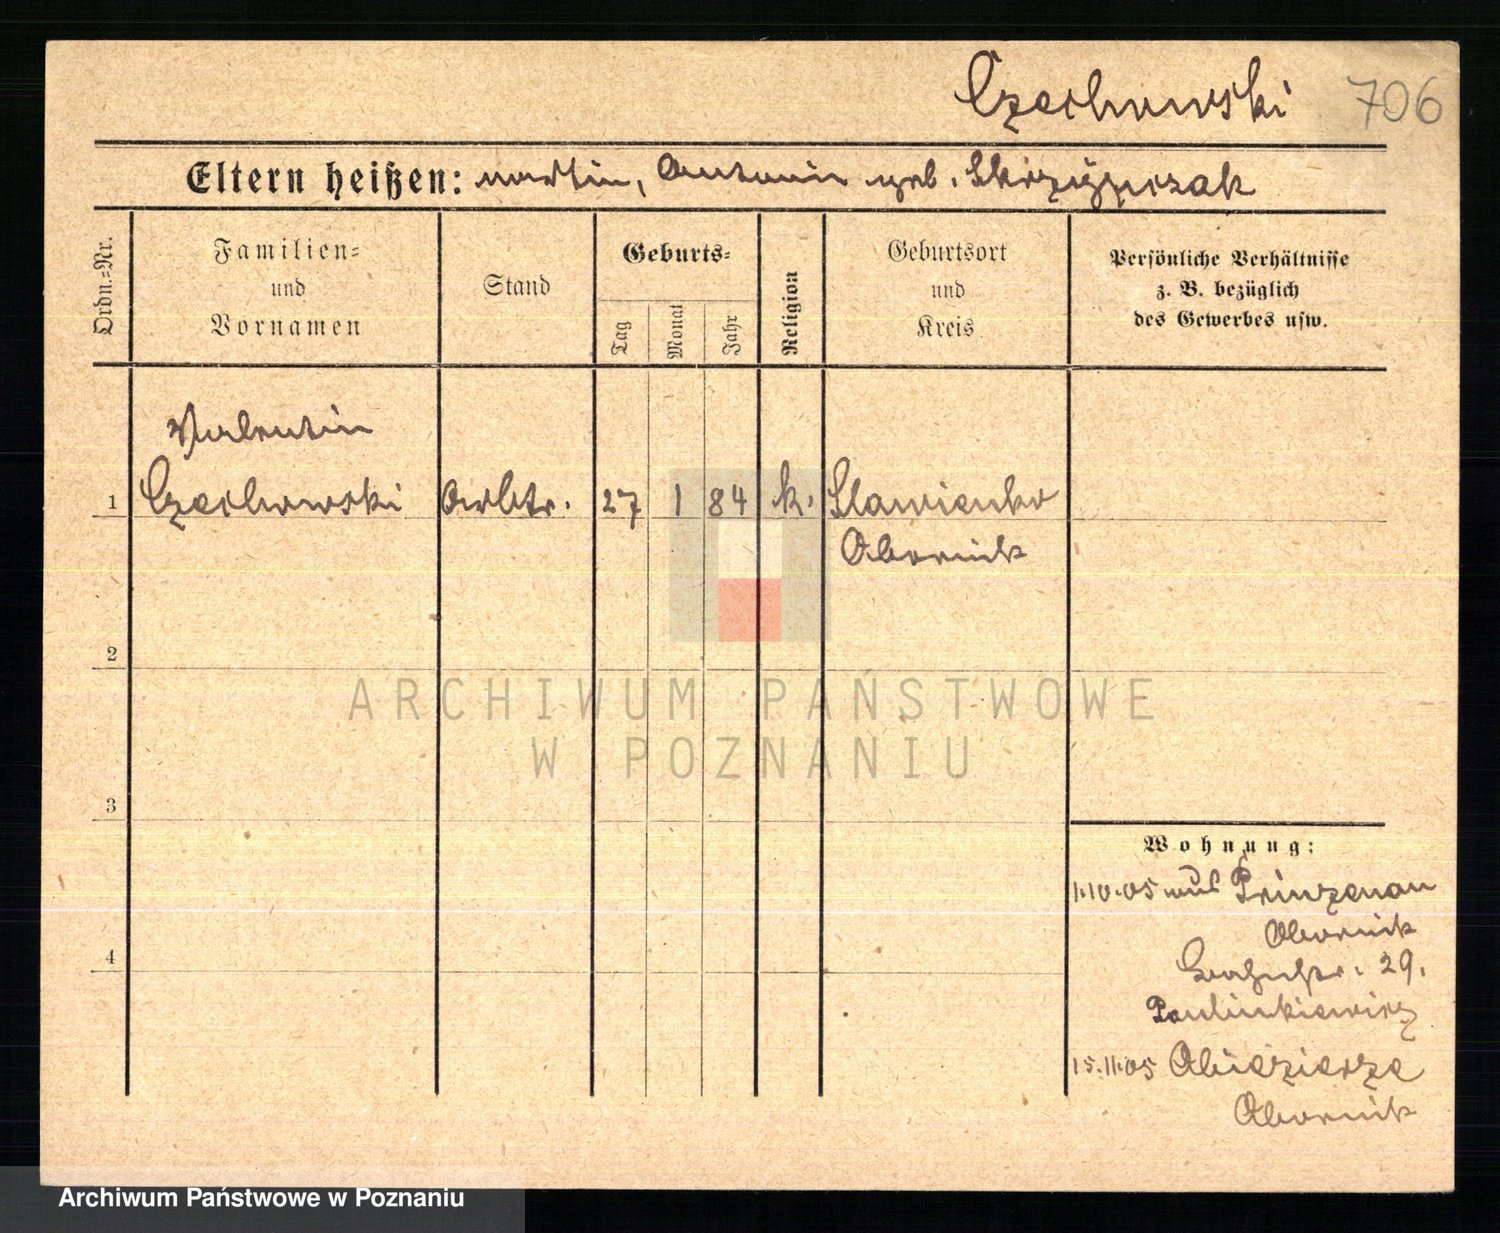 Czechowski 706
Eltern heißen: Martin, Antonin geb. Skrzypczak
Ordn.-Nr.
Familien-
und
Vornamen
Stand
Geburts-
Tag
Monat
Jahr
Religion
Geburtsort
und
Kreis
Persönliche Verhältnisse
z. B. bezüglich
des Gewerbes usw.
Valentin
1 Czechowski Arbtr. 27 1 84 k. Slawienko
Obornik
2
3
4
Wohnung:
1.10.05 aus Prinzenau
Obornik
29.
Paulinkiewicz
15.11.05 Obiezierze
Obornik
ARCHIWUM PAŃSTWOWE
W POZNANIU
Archiwum Państwowe w Poznaniu